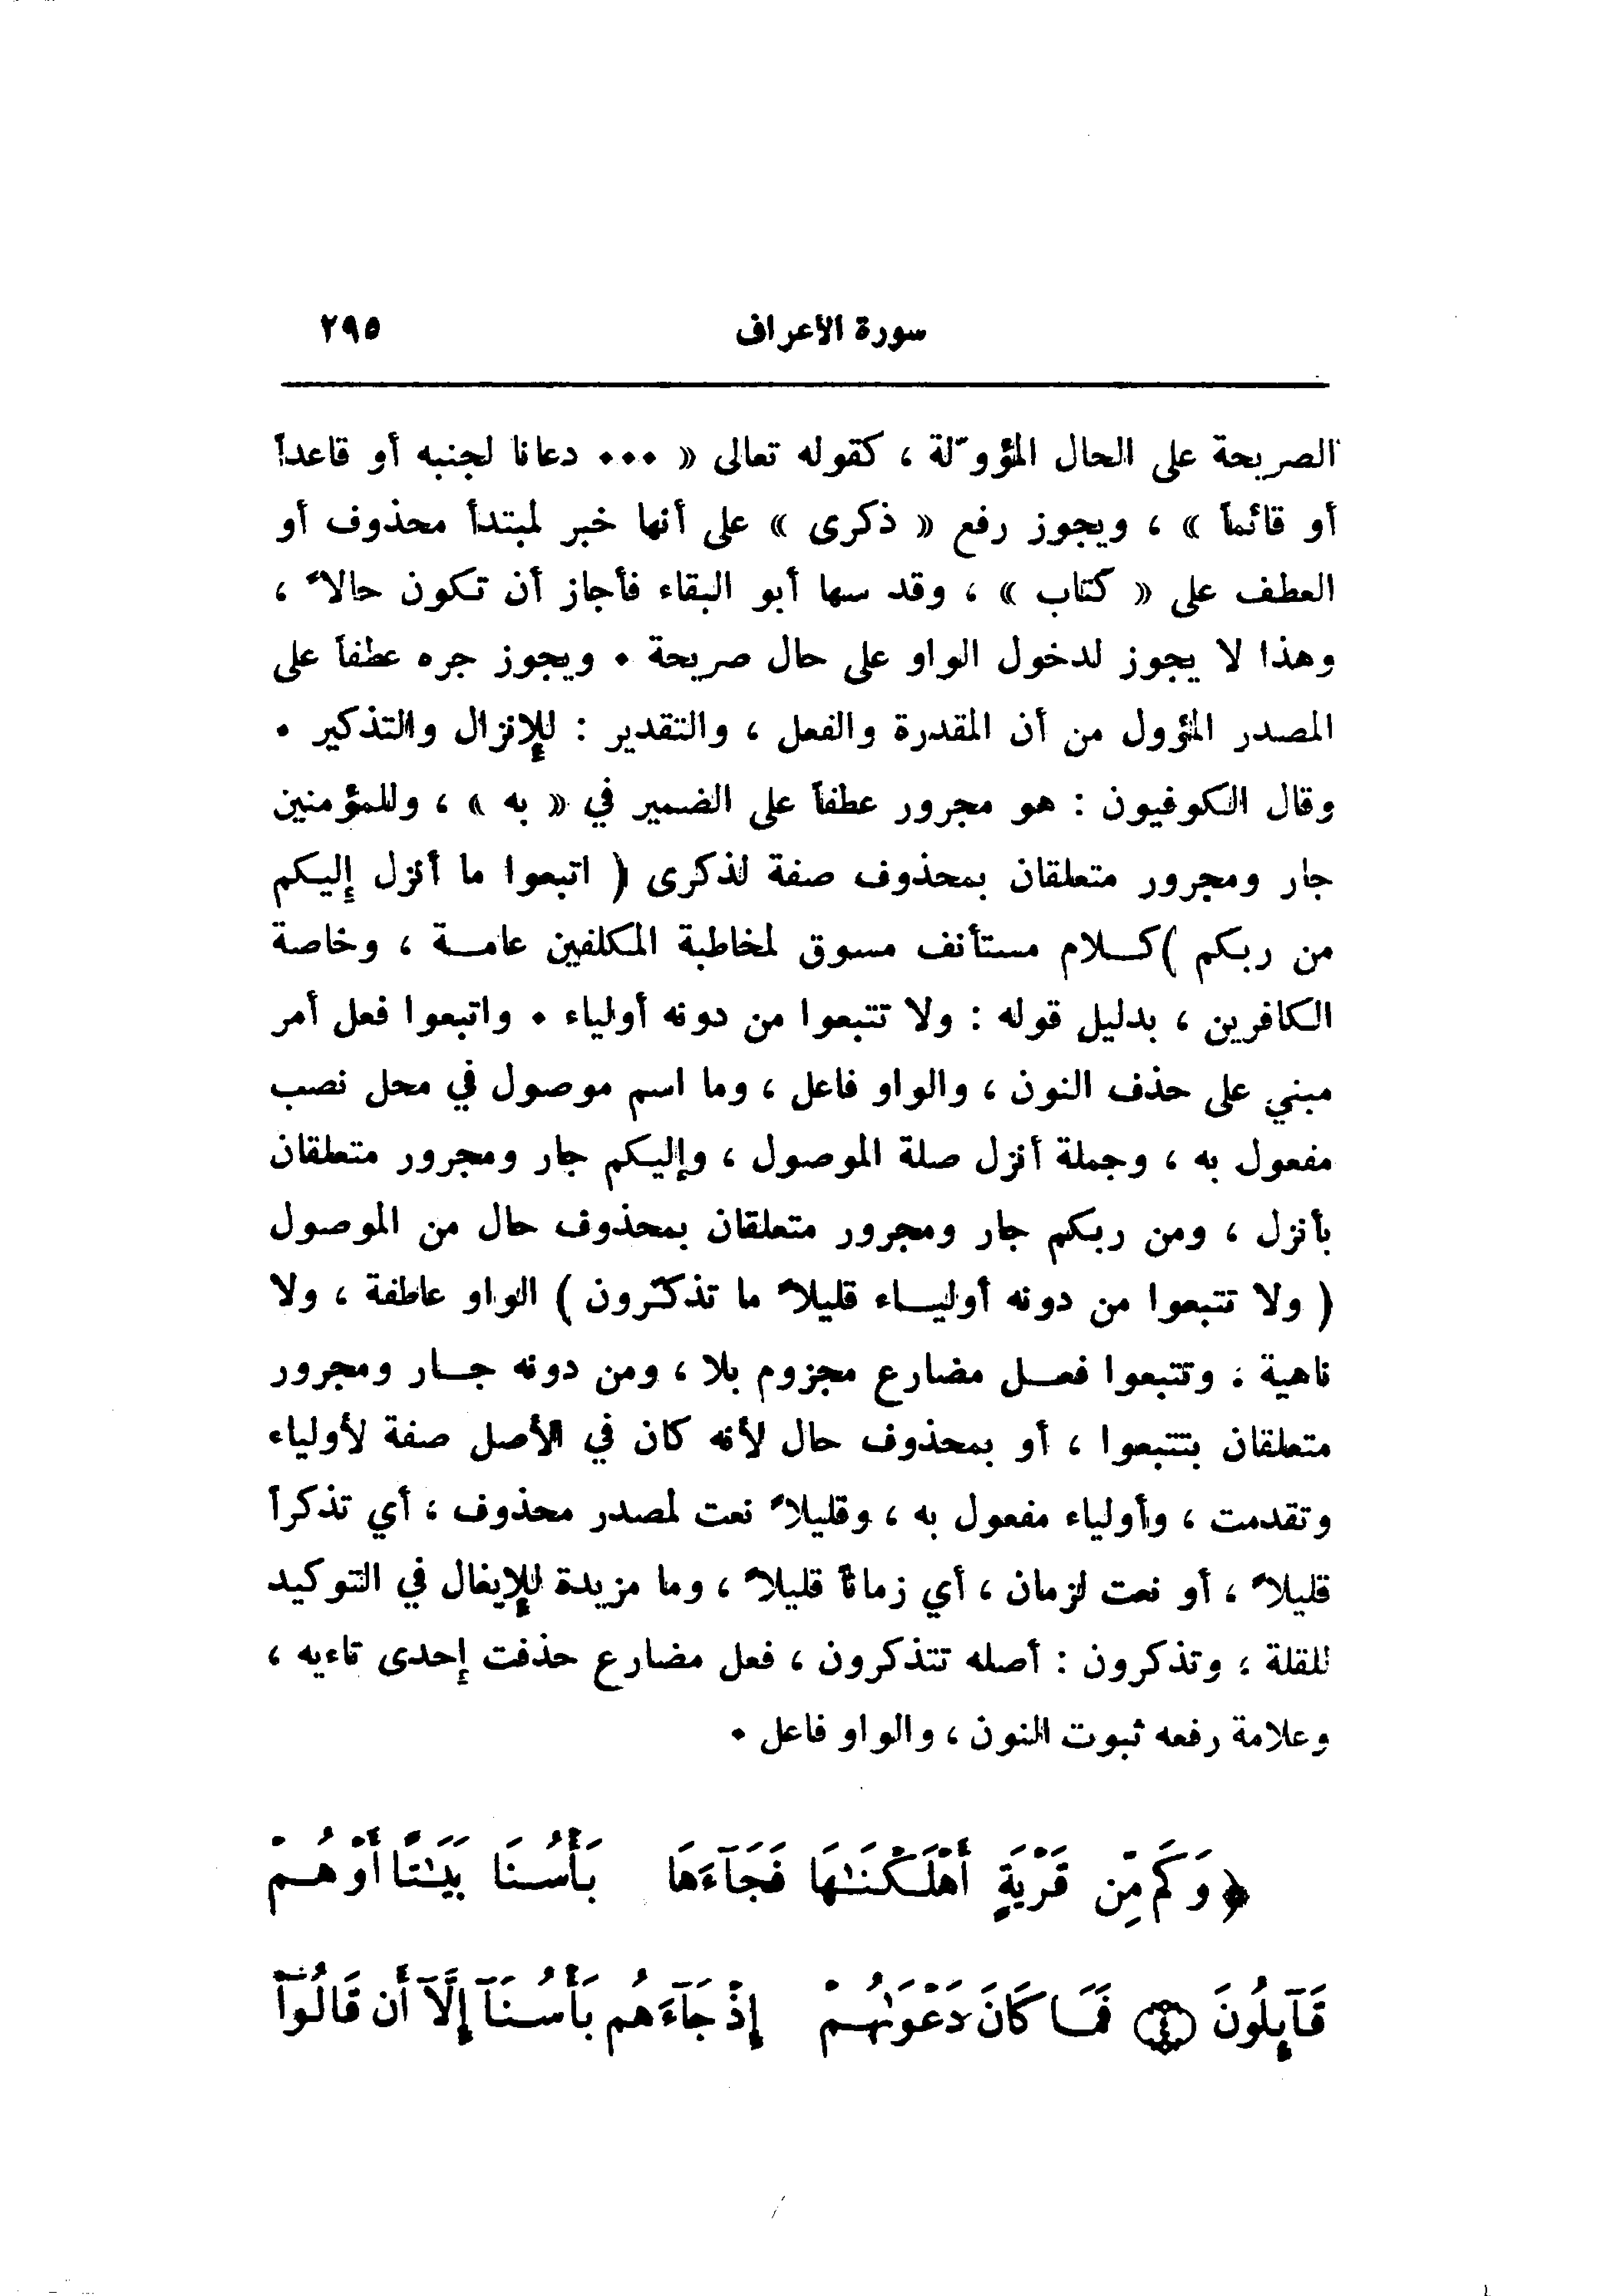 سورة الأعراف ٢٩٥
الصريحة على الحال المؤوّلة ، كقوله تعالى « ... دعانا لجنبه أو قاعداً
أو قائماً » ، ويجوز رفع « ذكرى » على أنها خبر لمبتدأ محذوف أو
العطف على « كتاب » ، وقد سها أبو البقاء فأجاز أن تكون حالاً ،
وهذا لا يجوز لدخول الواو على حال صريحة . ويجوز جره عطفاً على
المصدر المؤول من أن المقدرة والفعل ، والتقدير : للإنزال والتذكير .
وقال الكوفيون : هو مجرور عطفاً على الضمير في « به » ، وللمؤمنين
جار ومجرور متعلقان بمحذوف صفة لذكرى ( اتبعوا ما أنزل إليكم
من ربكم ) كلام مستأنف مسوق لمخاطبة المكلفين عامة ، وخاصة
الكافرين ، بدليل قوله : ولا تتبعوا من دونه أولياء . واتبعوا فعل أمر
مبني على حذف النون ، والواو فاعل ، وما اسم موصول في محل نصب
مفعول به ، وجملة أنزل صلة الموصول ، وإليكم جار ومجرور متعلقان
بأنزل ، ومن ربكم جار ومجرور متعلقان بمحذوف حال من الموصول
( ولا تتبعوا من دونه أولياء قليلاً ما تذكّرون ) الواو عاطفة ، ولا
ناهية ، وتتبعوا فعل مضارع مجزوم بلا ، ومن دونه جار ومجرور
متعلقان بتتبعوا ، أو بمحذوف حال لأنه كان في الأصل صفة لأولياء
وتقدمت ، وأولياء مفعول به ، وقليلاً نعت لمصدر محذوف ، أي تذكراً
قليلاً ، أو نعت لزمان ، أي زماناً قليلاً ، وما مزيدة للإيغال في التوكيد
للقلة ، وتذكرون : أصله تتذكرون ، فعل مضارع حذفت إحدى تاءيه ،
وعلامة رفعه ثبوت النون ، والواو فاعل .
﴿ وَكَم مِّن قَرْيَةٍ أَهْلَكْنَٰهَا فَجَآءَهَا بَأْسُنَا بَيَٰتًا أَوْ هُمْ
قَآئِلُونَ ۝٤ فَمَا كَانَ دَعْوَىٰهُمْ إِذْ جَآءَهُم بَأْسُنَآ إِلَّآ أَن قَالُوٓا۟